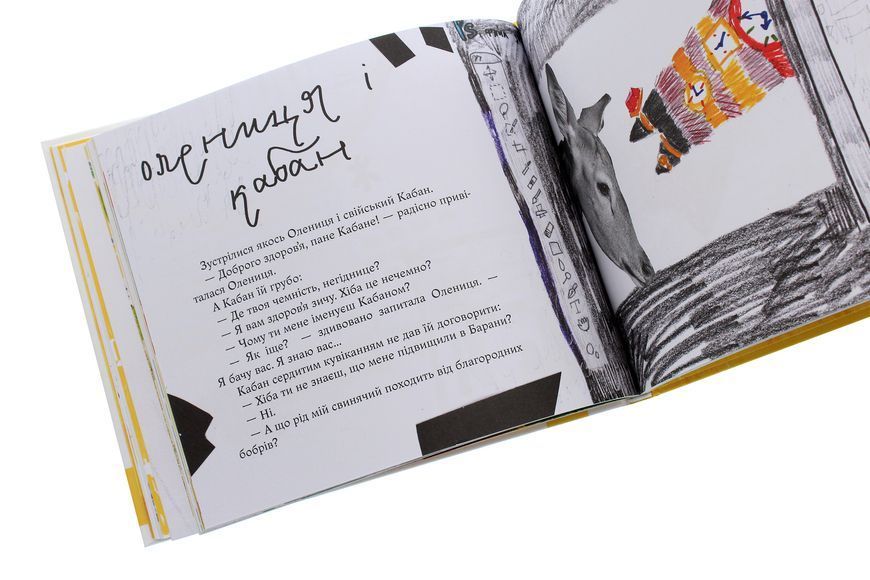 олениця і
кабан
Зустрілися якось Олениця і свійський Кабан.
— Доброго здоров'я, пане Кабане! — радісно приві-
талася Олениця.
А Кабан їй грубо:
— Де твоя чемність, негіднице?
— Я вам здоров'я зичу. Хіба це нечемно?
— Чому ти мене іменуєш Кабаном?
— Як іще? — здивовано запитала Олениця. —
Я бачу вас. Я знаю вас...
Кабан сердитим кувіканням не дав їй договорити:
— Хіба ти не знаєш, що мене підвищили в Барани?
— Ні.
— А що рід мій свинячий походить від благородних
бобрів?